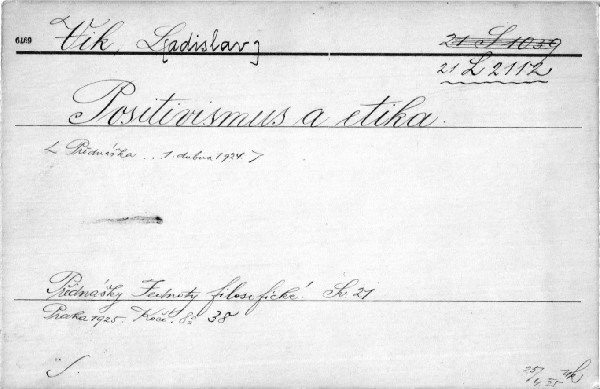 6489 Vik, L[adislav]
21 S 1039
21 L 2112
Positivismus a etika.
< Přednáška ... 1. dubna 1924 >
Přednášky Jednoty filosofické. Sv. 21
Praha 1925. Kčs. 8° 38